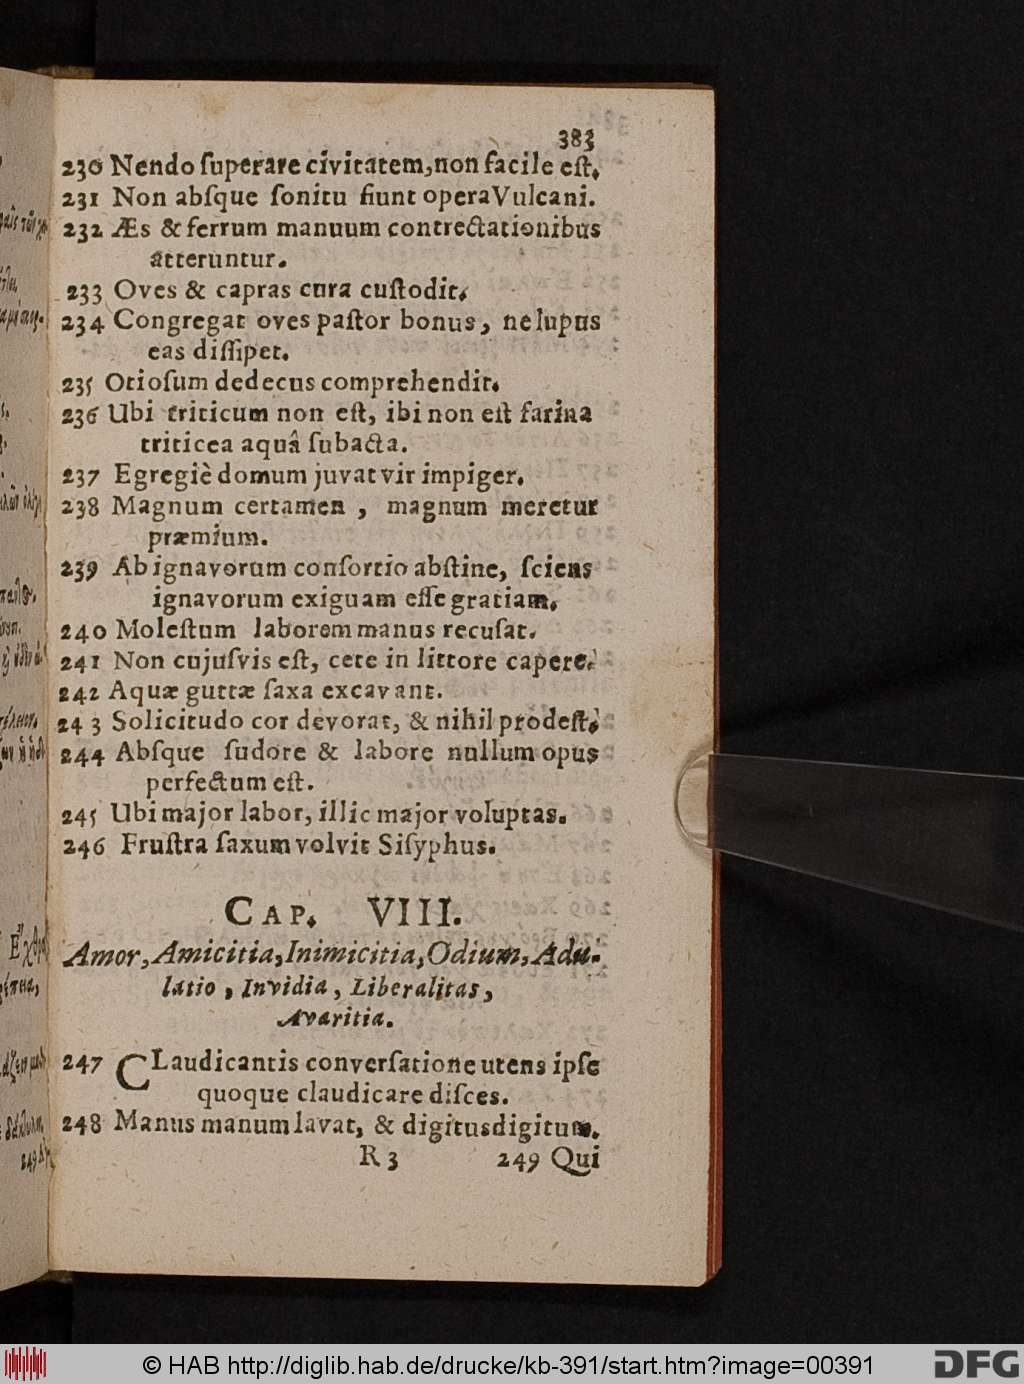 383
230 Nendo ſuperare civitatem, non facile eſt.
231 Non abſque ſonitu fiunt opera Vulcani.
232 Æs & ferrum manuum contrectationibus
atteruntur.
233 Oves & capras cura cuſtodit.
234 Congregat oves paſtor bonus, ne lupus
eas diſſipet.
235 Otioſum dedecus comprehendit.
236 Ubi triticum non eſt, ibi non eſt farina
triticea aquâ ſubacta.
237 Egregiè domum juvat vir impiger.
238 Magnum certamen, magnum meretur
præmium.
239 Ab ignavorum conſortio abſtine, ſciens
ignavorum exiguam eſſe gratiam.
240 Moleſtum laborem manus recuſat.
241 Non cujuſvis eſt, cete in littore capere.
242 Aquæ guttæ ſaxa excavant.
243 Solicitudo cor devorat, & nihil prodeſt.
244 Abſque ſudore & labore nullum opus
perfectum eſt.
245 Ubi major labor, illic major voluptas.
246 Fruſtra ſaxum volvit Siſyphus.
CAP. VIII.
Amor, Amicitia, Inimicitia, Odium, Adu-
latio, Invidia, Liberalitas,
Avaritia.
247 CLaudicantis converſatione utens ipſe
quoque claudicare diſces.
248 Manus manum lavat, & digitus digitum.
R 3 249 Qui
© HAB http://diglib.hab.de/drucke/kb-391/start.htm?image=00391 DFG